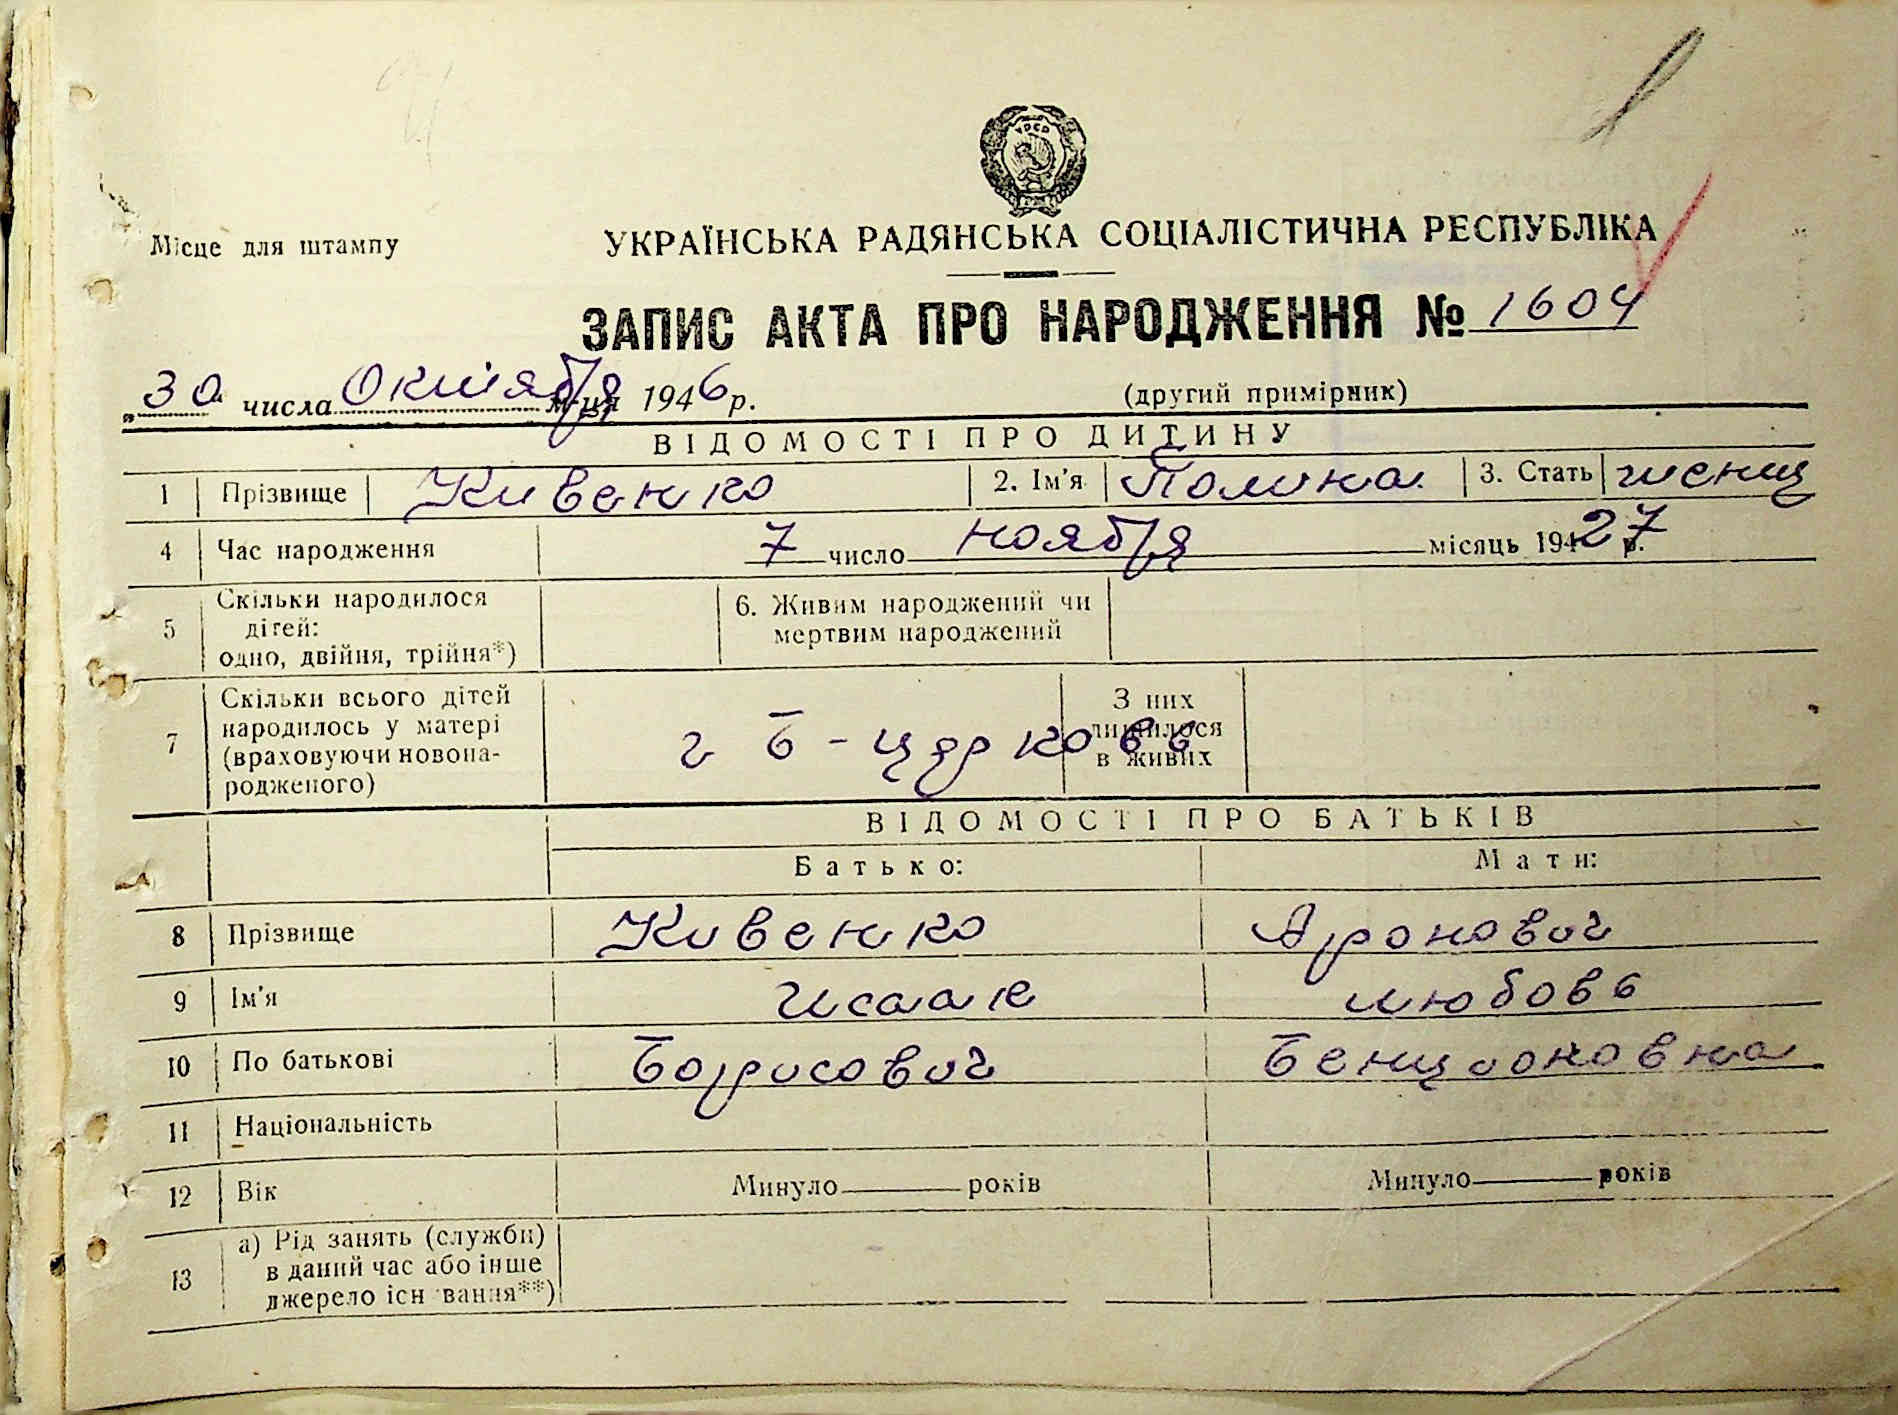 УРСР
Місце для штампу
УКРАЇНСЬКА РАДЯНСЬКА СОЦІАЛІСТИЧНА РЕСПУБЛІКА
ЗАПИС АКТА ПРО НАРОДЖЕННЯ № 1604
„30" числа Октября м-ця 1946 р.
(другий примірник)
ВІДОМОСТІ ПРО ДИТИНУ
1 Прізвище Кивенко 2. Ім'я Полина 3. Стать женщ
4 Час народження 7 число ноября місяць 194 27 р.
5 Скільки народилося дітей: одно, двійня, трійня*) 6. Живим народжений чи мертвим народжений
7 Скільки всього дітей народилось у матері (враховуючи новонародженого) г Б-Церковь З них лишилося в живих
ВІДОМОСТІ ПРО БАТЬКІВ
Батько: Мати:
8 Прізвище Кивенко Аронович
9 Ім'я Исаак Любовь
10 По батькові Борисович Бенционовна
11 Національність
12 Вік Минуло років Минуло років
13 а) Рід занять (служби)
в даний час або інше
джерело існ вання**)